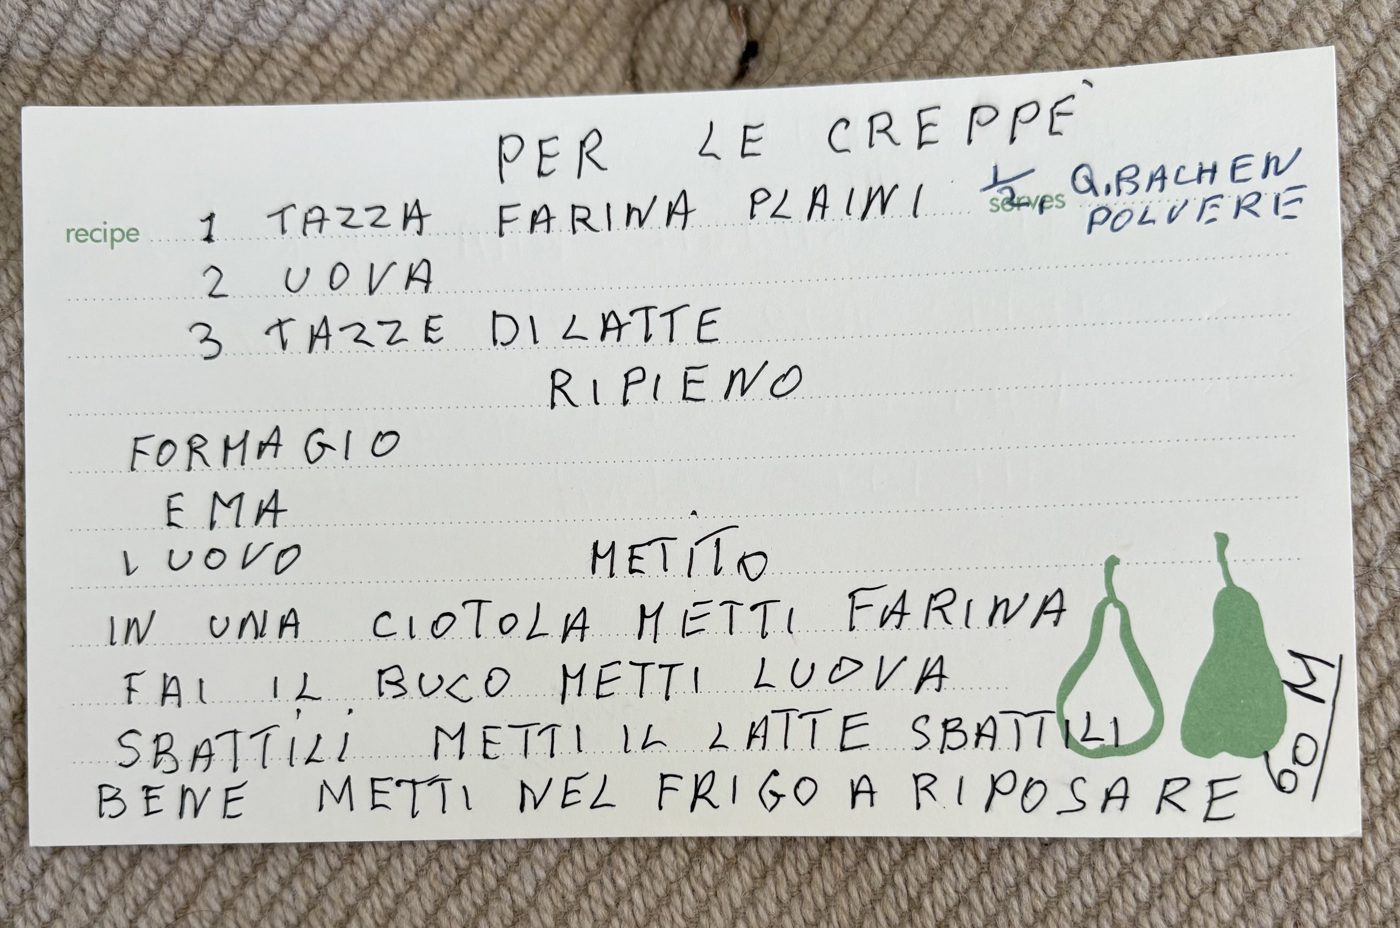 PER LE CREPPE`
recipe 1 TAZZA FARINA PLAINI serves 1/2 Q.BACHEN
POLVERE
2 UOVA
3 TAZZE DI LATTE
RIPIENO
FORMAGIO
E MA
1 UOVO METITO
IN UNA CIOTOLA METTI FARINA
FAI IL BUCO METTI LUOVA
SBATTILI METTI IL LATTE SBATTILI
BENE METTI NEL FRIGO A RIPOSARE
60 M